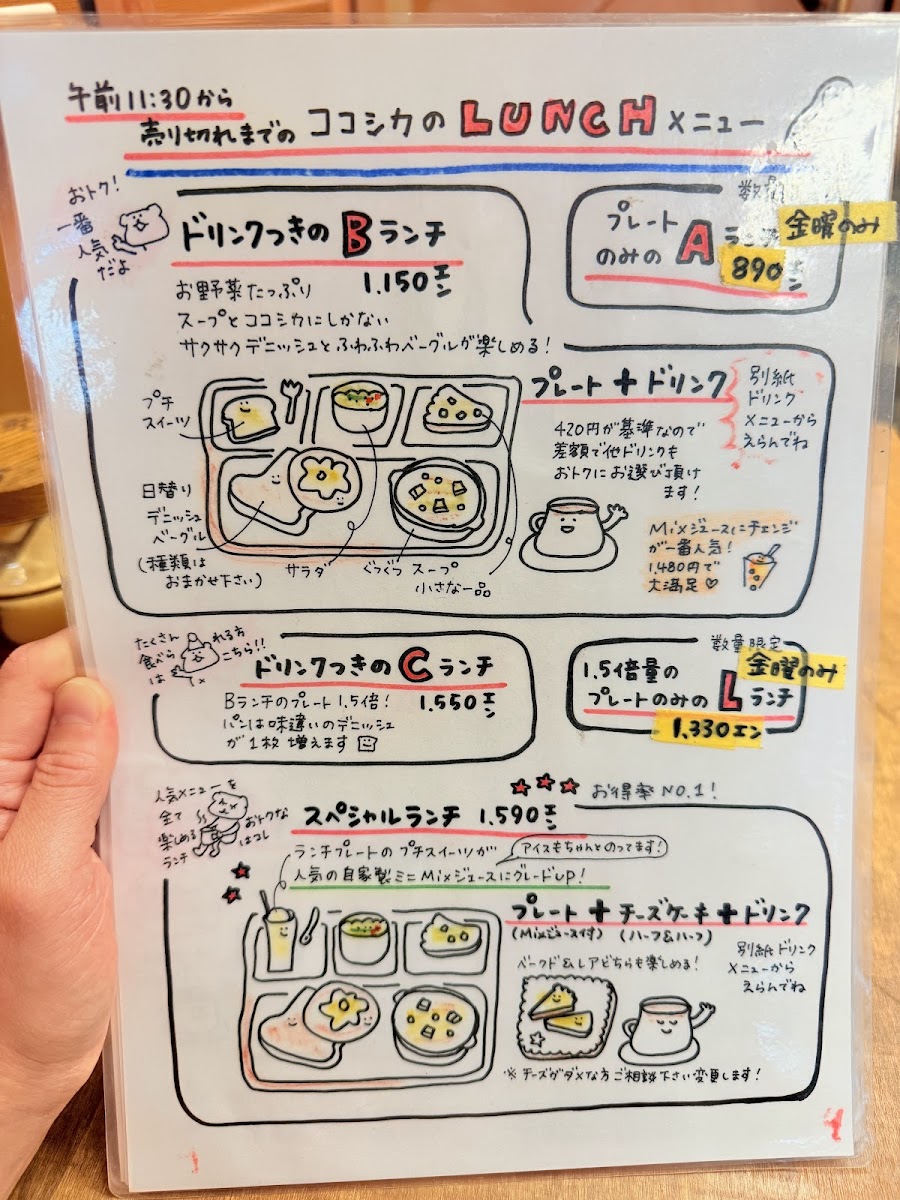 午前11:30から
売り切れまでの ココシカの LUNCH メニュー
おトク!
一番
人気
だよ
ドリンクつきの Bランチ
1.150エン
お野菜たっぷり
スープとココシカにしかない
サクサクデニッシュとふわふわベーグルが楽しめる!
数量
金曜のみ
プレート
のみの A ランチ
890エン
プレート+ドリンク
別紙
ドリンク
メニューから
えらんでね
420円が基準なので
差額で他ドリンクも
おトクにお選び頂け
ます!
Mixジュースにチェンジ
が一番人気!
1.480円で
大満足♡
プチ
スイーツ
日替り
デニッシュ
ベーグル
(種類は
おまかせ下さい)
サラダ
ぐつぐつ スープ
小さな一品
たくさん
食べられる方
はこちら!!
ドリンクつきの Cランチ
Bランチのプレート1.5倍!
1.550エン
パンは味違いのデニッシュ
が1枚 増えます
数量限定
金曜のみ
1.5倍量の
プレートのみの Lランチ
1.330エン
人気メニューを
全て
楽しめる
ランチ
おトクな
はコレ
★★★ お得率NO.1!
スペシャルランチ 1.590エン
ランチプレートの プチスイーツが
アイスもちゃんとのってます!
人気の自家製ミニMixジュースにグレードUP!
プレート+チーズケーキ+ドリンク
(Mixジュース付) (ハーフ&ハーフ)
ベークド&レアどちらも楽しめる!
別紙ドリンク
メニューから
えらんでね
※チーズがダメな方ご相談下さい変更します!